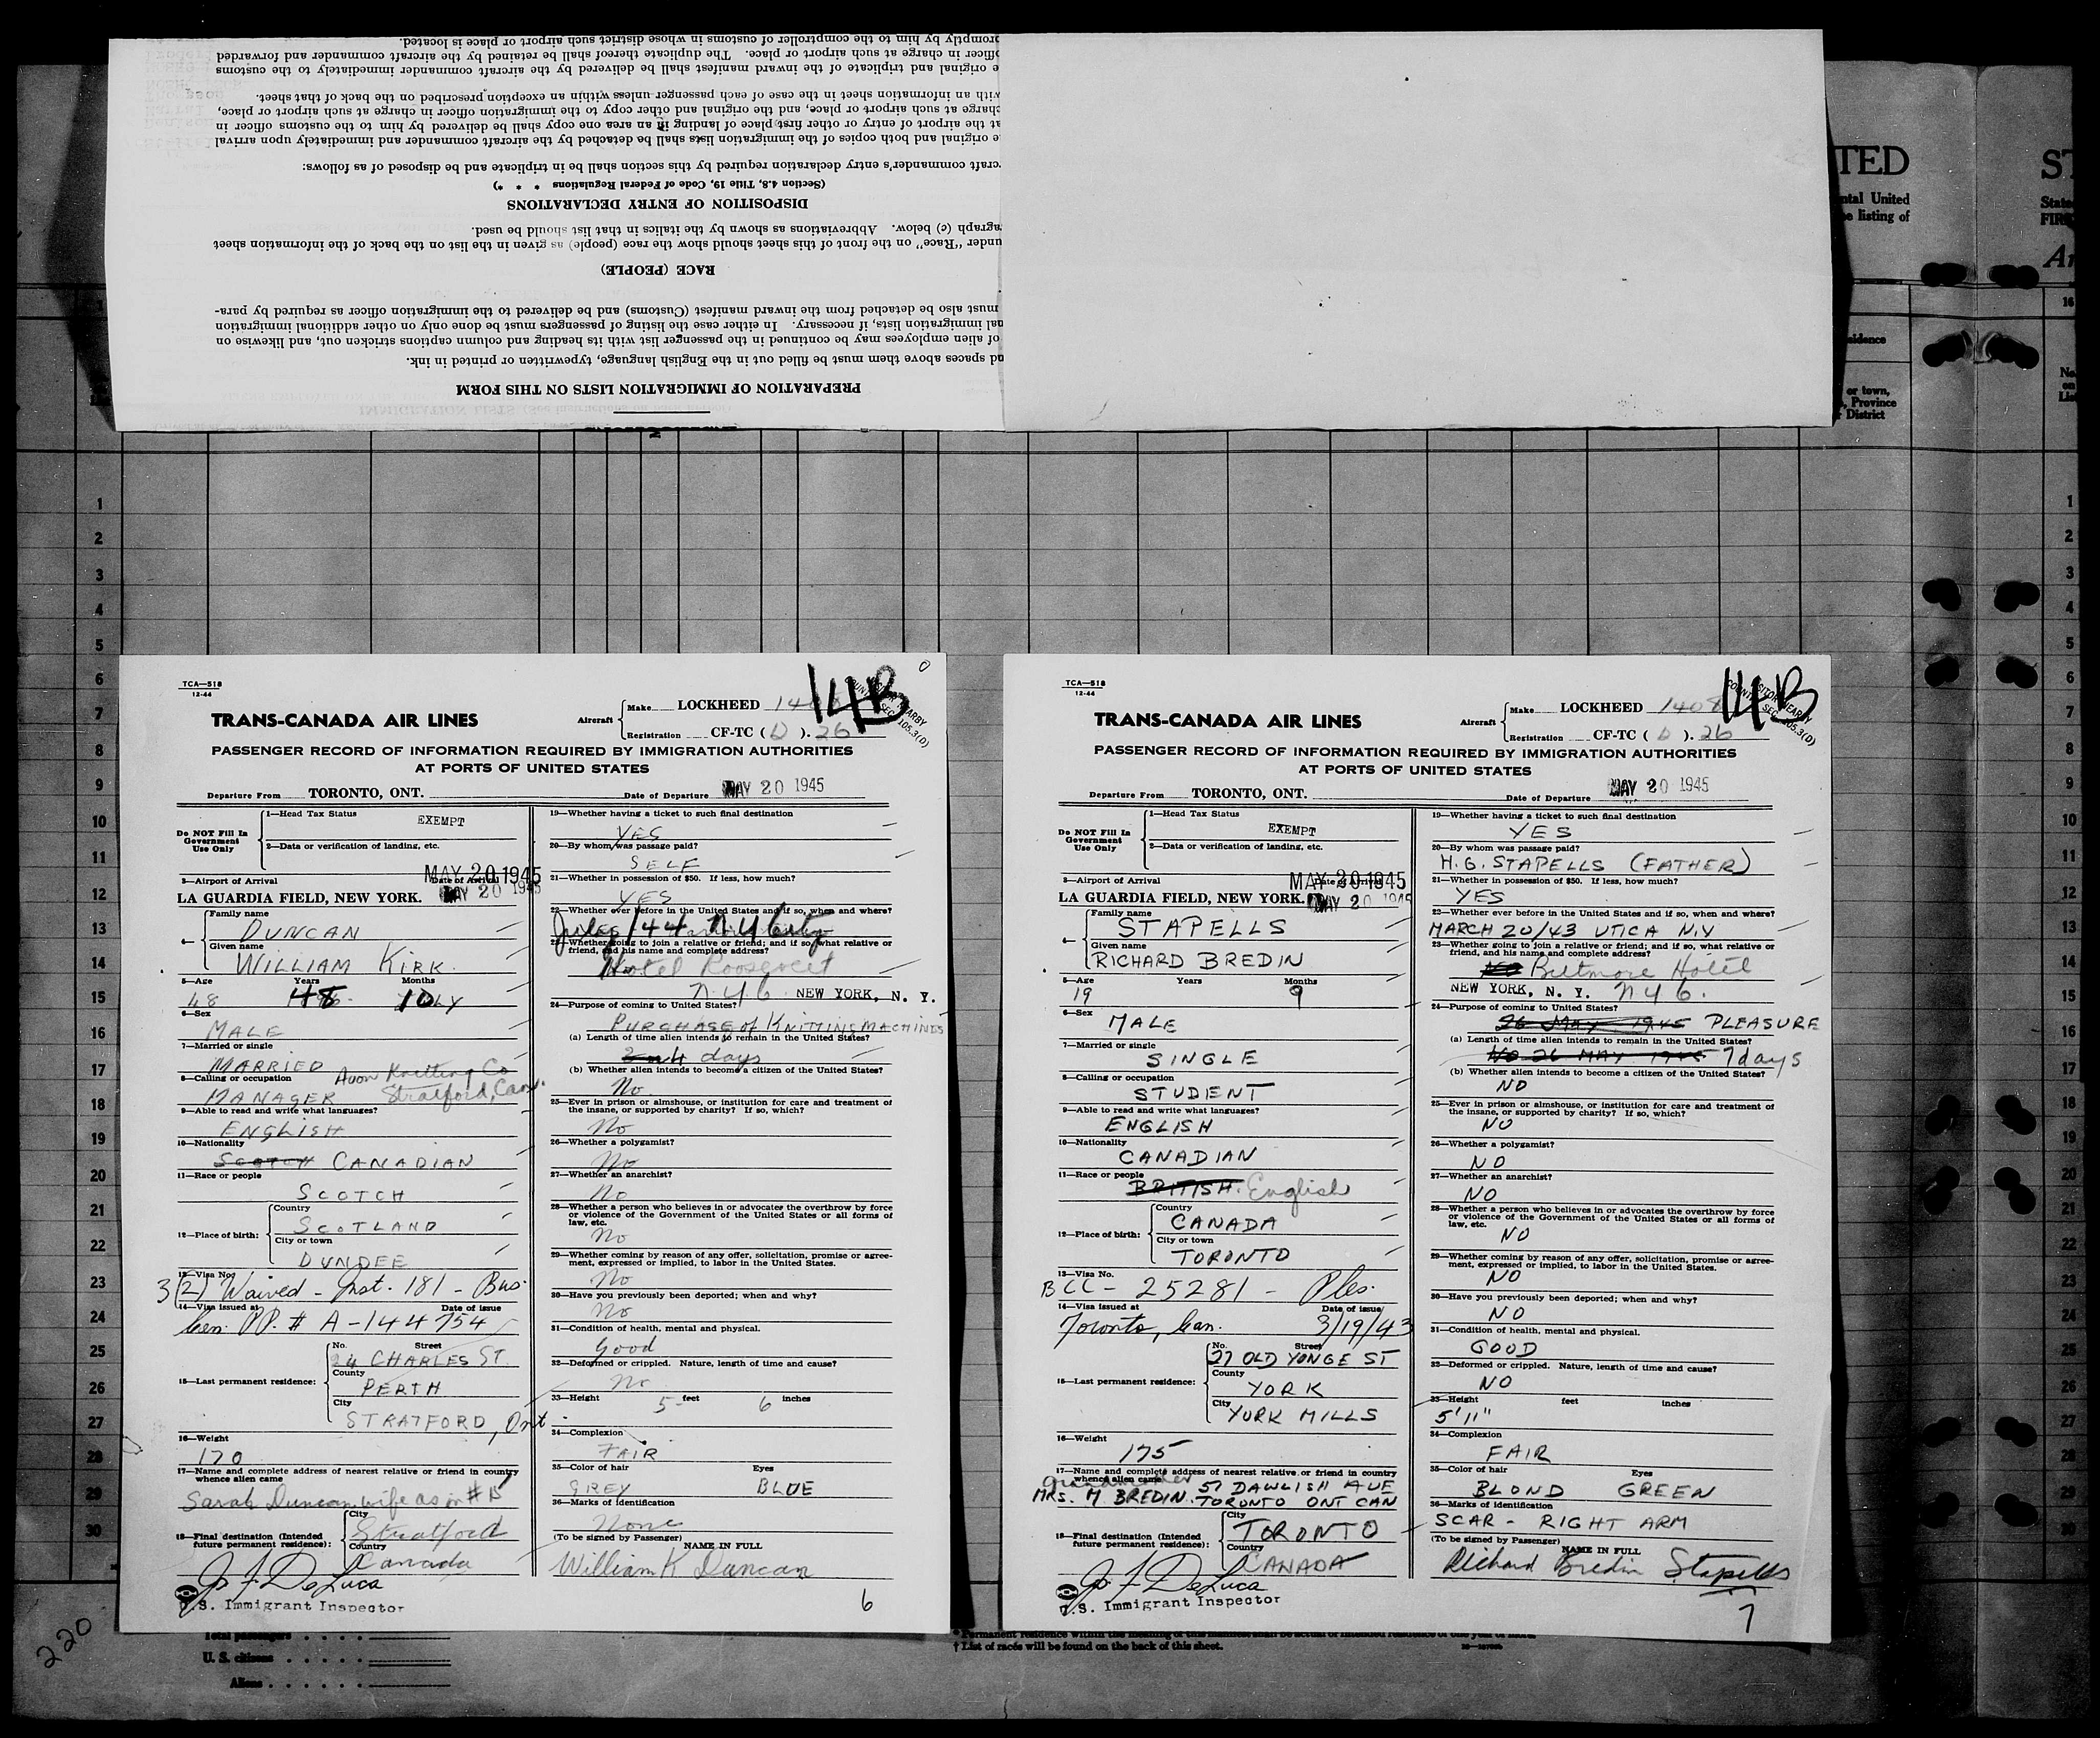 PREPARATION OF IMMIGRATION LISTS ON THIS FORM
nd spaces above them must be filled out in the English language, typewritten or printed in ink.
of alien employees may be continued in the passenger list with its heading and column captions stricken out, and likewise on
nal immigration lists, if necessary. In either case the listing of passengers must be done only on other additional immigration
must also be detached from the inward manifest (Customs) and be delivered to the immigration officer as required by para-
RACE (PEOPLE)
under "Race" on the front of this sheet should show the race (people) as given in the list on the back of the information sheet
agraph (c) below. Abbreviations as shown by the italics in that list should be used.
DISPOSITION OF ENTRY DECLARATIONS
(Section 4.8, Title 19, Code of Federal Regulations * * *)
craft commander's entry declaration required by this section shall be in triplicate and be disposed of as follows:
e original and both copies of the immigration lists shall be detached by the aircraft commander and immediately upon arrival
at the airport of entry or other first place of landing in an area one copy shall be delivered by him to the customs officer in
charge at such airport or place, and the original and other copy to the immigration officer in charge at such airport or place,
with an information sheet in the case of each passenger unless within an exception prescribed on the back of that sheet.
e original and triplicate of the inward manifest shall be delivered by the aircraft commander immediately to the customs
officer in charge at such airport or place. The duplicate thereof shall be retained by the aircraft commander and forwarded
promptly by him to the comptroller of customs in whose district such airport or place is located.
TED
ntal United
e listing of
sidence
or town,
, Province
r District
ST
State
FIR
16
1
2
3
4
5
6
7
8
9
10
11
12
13
14
15
16
17
18
19
20
21
22
23
24
25
26
27
28
29
30
TCA—518
12-44
14B
TRANS-CANADA AIR LINES
Aircraft
Make LOCKHEED 1408
Registration CF-TC ( D ). 26
PASSENGER RECORD OF INFORMATION REQUIRED BY IMMIGRATION AUTHORITIES
AT PORTS OF UNITED STATES
Departure From TORONTO, ONT.
Date of Departure MAY 20 1945
Do NOT Fill In
Government
Use Only
1—Head Tax Status EXEMPT
2—Data or verification of landing, etc.
3—Airport of Arrival
Date of Arrival
MAY 20 1945
LA GUARDIA FIELD, NEW YORK. MAY 20 1945
4—
Family name
DUNCAN
Given name
WILLIAM KIRK
5—Age Years Months
48 48 10
6—Sex
MALE
7—Married or single
MARRIED
8—Calling or occupation Avon Knitting Co
MANAGER Stratford, Can.
9—Able to read and write what languages?
ENGLISH
10—Nationality
SCOTCH CANADIAN
11—Race or people
SCOTCH
12—Place of birth:
Country
SCOTLAND
City or town
DUNDEE
13—Visa No.
3(2) Waived - Inst. 181 - Bus.
14—Visa issued at Date of issue
Can. PP. # A-144754
15—Last permanent residence:
No. Street
24 CHARLES ST.
County
PERTH
City
STRATFORD, Ont.
16—Weight
170
17—Name and complete address of nearest relative or friend in country
whence alien came
Sarah Duncan wife as in # 15
18—Final destination (Intended
future permanent residence):
City
Stratford
Country
Canada
J. F. DeLuca
U.S. Immigrant Inspector
19—Whether having a ticket to such final destination
YES
20—By whom was passage paid?
SELF
21—Whether in possession of $50. If less, how much?
YES
22—Whether ever before in the United States and if so, when and where?
July/44 N.Y. City
23—Whether going to join a relative or friend; and if so, what relative or
friend, and his name and complete address?
Hotel Roosevelt
N.Y.C. NEW YORK, N. Y.
24—Purpose of coming to United States?
PURCHASE of KNITTING MACHINES
(a) Length of time alien intends to remain in the United States?
4 days
(b) Whether alien intends to become a citizen of the United States?
No.
25—Ever in prison or almshouse, or institution for care and treatment of
the insane, or supported by charity? If so, which?
No
26—Whether a polygamist?
No
27—Whether an anarchist?
No
28—Whether a person who believes in or advocates the overthrow by force
or violence of the Government of the United States or all forms of
law, etc.
No
29—Whether coming by reason of any offer, solicitation, promise or agree-
ment, expressed or implied, to labor in the United States.
No
30—Have you previously been deported; when and why?
No
31—Condition of health, mental and physical.
Good
32—Deformed or crippled. Nature, length of time and cause?
No
33—Height 5 feet 6 inches
34—Complexion
FAIR
35—Color of hair Eyes
GREY BLUE
36—Marks of identification
None
(To be signed by Passenger) NAME IN FULL
William K Duncan
6
TCA—518
12-44
14B
TRANS-CANADA AIR LINES
Aircraft
Make LOCKHEED 1408
Registration CF-TC ( D ). 26
PASSENGER RECORD OF INFORMATION REQUIRED BY IMMIGRATION AUTHORITIES
AT PORTS OF UNITED STATES
Departure From TORONTO, ONT.
Date of Departure MAY 20 1945
Do NOT Fill In
Government
Use Only
1—Head Tax Status EXEMPT
2—Data or verification of landing, etc.
3—Airport of Arrival
Date of Arrival
MAY 20 1945
LA GUARDIA FIELD, NEW YORK. MAY 20 1945
4—
Family name
STAPELLS
Given name
RICHARD BREDIN
5—Age Years Months
19 9
6—Sex
MALE
7—Married or single
SINGLE
8—Calling or occupation
STUDENT
9—Able to read and write what languages?
ENGLISH
10—Nationality
CANADIAN
11—Race or people
BRITISH. English
12—Place of birth:
Country
CANADA
City or town
TORONTO
13—Visa No.
BCC - 25281 - Ples.
14—Visa issued at Date of issue
Toronto, Can. 3/19/43
15—Last permanent residence:
No. Street
27 OLD YONGE ST
County
YORK
City
YORK MILLS
16—Weight
175
17—Name and complete address of nearest relative or friend in country
whence alien came
Grandmother 57 DAWLISH AVE
MRS. M. BREDIN. TORONTO ONT CAN
18—Final destination (Intended
future permanent residence):
City
TORONTO
Country
CANADA
J. F. DeLuca
U.S. Immigrant Inspector
19—Whether having a ticket to such final destination
YES
20—By whom was passage paid?
H. G. STAPELLS (FATHER)
21—Whether in possession of $50. If less, how much?
YES
22—Whether ever before in the United States and if so, when and where?
MARCH 20/43 UTICA N.Y
23—Whether going to join a relative or friend; and if so, what relative or
friend, and his name and complete address?
Biltmore Hotel
NEW YORK, N. Y. N.Y.C.
24—Purpose of coming to United States?
26 MAY 1945 PLEASURE
(a) Length of time alien intends to remain in the United States?
26 MAY 1945 7 days
(b) Whether alien intends to become a citizen of the United States?
NO
25—Ever in prison or almshouse, or institution for care and treatment of
the insane, or supported by charity? If so, which?
NO
26—Whether a polygamist?
NO
27—Whether an anarchist?
NO
28—Whether a person who believes in or advocates the overthrow by force
or violence of the Government of the United States or all forms of
law, etc.
NO
29—Whether coming by reason of any offer, solicitation, promise or agree-
ment, expressed or implied, to labor in the United States.
NO
30—Have you previously been deported; when and why?
NO
31—Condition of health, mental and physical.
GOOD
32—Deformed or crippled. Nature, length of time and cause?
NO
33—Height feet inches
5'11"
34—Complexion
FAIR
35—Color of hair Eyes
BLOND GREEN
36—Marks of identification
SCAR - RIGHT ARM
(To be signed by Passenger) NAME IN FULL
Richard Bredin Stapells
7
220
Total passengers
U. S. citizens
Aliens
† List of races will be found on the back of this sheet.